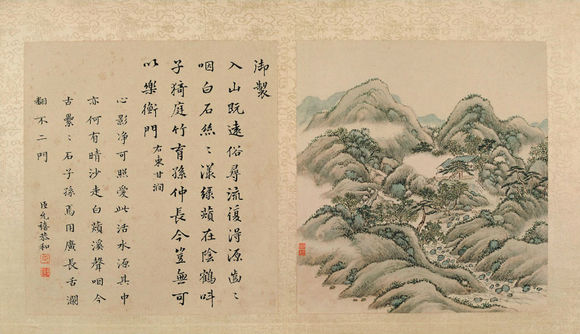 御製
入山既遠俗尋流復得源齒〻
咽白石絲〻漾綠薠在陰鶴叫
子猗庭竹育孫仲長今豈無可
以樂衡門 右東甘澗
心影净可照愛此活水源其中
亦何有晴沙走白薠溪聲咽今
古纍〻石子孫焉用廣長舌瀾
翻不二門
臣允禧恭和